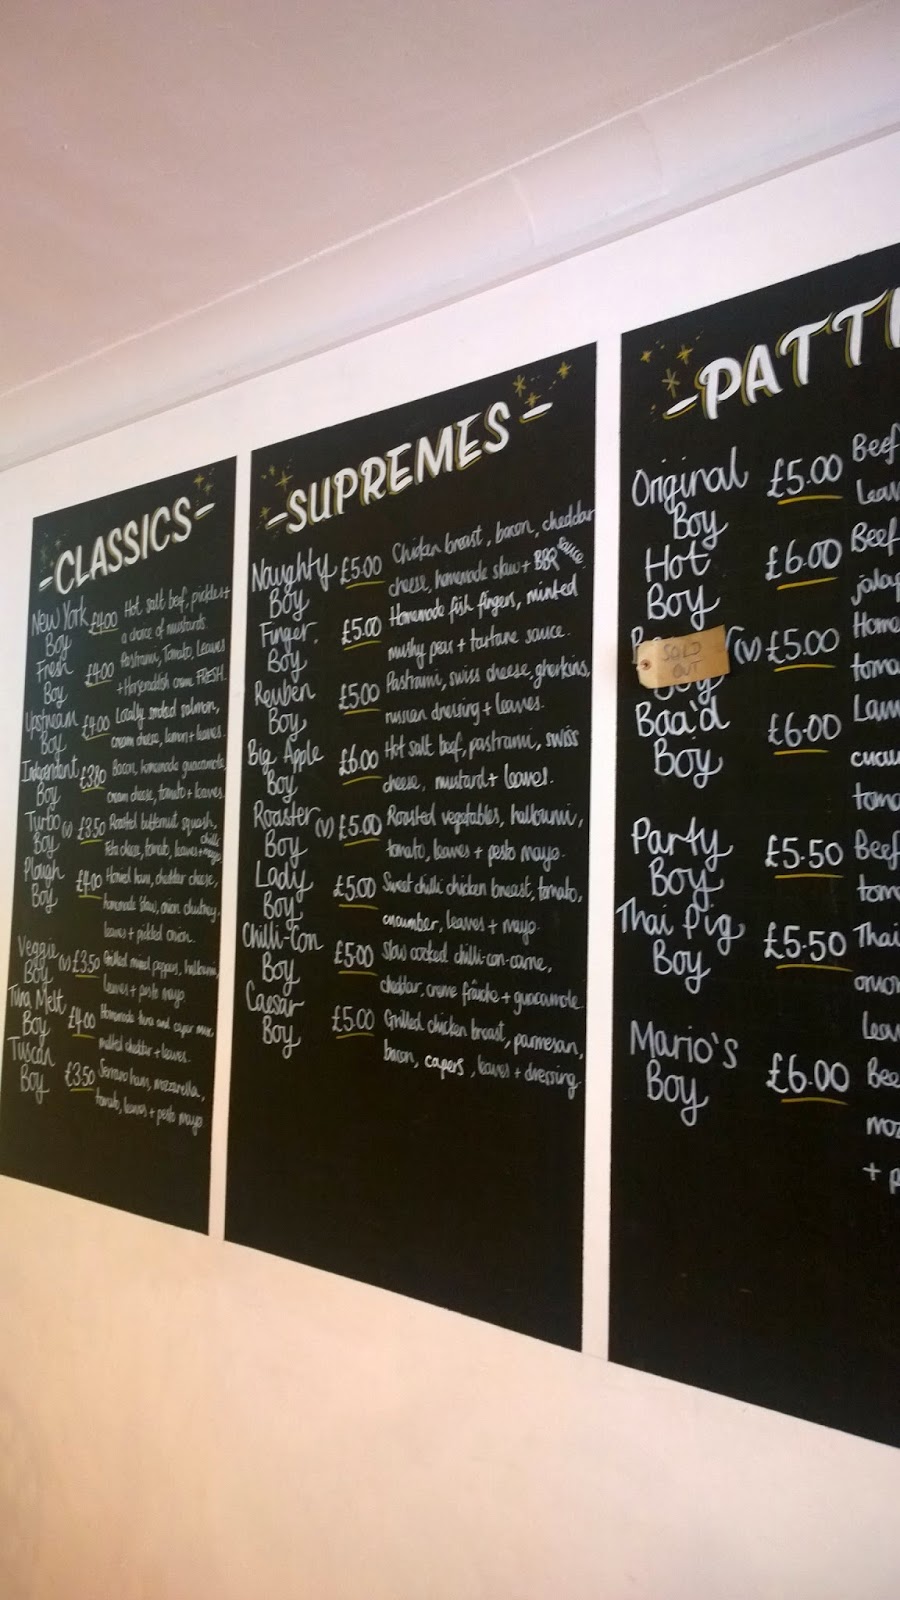 -CLASSICS-
New York Boy £4.00 Hot salt beef, pickles +
a choice of mustards
Fresh Boy £4.00 Pastrami, Tomato, Leaves
+ Horseradish cream FRESH.
Upstream Boy £4.00 Locally smoked salmon,
cream cheese, lemon + leaves.
Independent Boy £3.80 Bacon, homemade guacamole,
cream cheese, tomato + leaves.
Turbo Boy (v) £3.50 Roasted butternut squash,
Feta cheese, tomato, leaves + chilli mayo
Plough Boy £4.00 Honey ham, cheddar cheese,
homemade slaw, onion chutney,
leaves + pickled onion.
Veggie Boy (v) £3.50 Grilled mixed peppers, halloumi,
leaves + pesto mayo.
Tuna Melt Boy £4.00 Homemade tuna and caper mix,
melted cheddar + leaves.
Tuscan Boy £3.50 Serrano ham, mozzarella,
tomato, leaves + pesto mayo.
-SUPREMES-
Naughty Boy £5.00 Chicken breast, bacon, cheddar
cheese, homemade slaw + BBQ sauce.
Finger Boy £5.00 Homemade fish fingers, minted
mushy peas + tartare sauce.
Reuben Boy £5.00 Pastrami, swiss cheese, gherkins,
russian dressing + leaves.
Big Apple Boy £6.00 Hot salt beef, pastrami, swiss
cheese, mustard + leaves.
Roaster Boy (v) £5.00 Roasted vegetables, halloumi,
tomato, leaves + pesto mayo.
Lady Boy £5.00 Sweet chilli chicken breast, tomato,
cucumber, leaves + mayo.
Chilli-Con Boy £5.00 Slow cooked chilli-con-carne,
cheddar, creme fraîche + guacamole
Caesar Boy £5.00 Grilled chicken breast, parmesan,
bacon, capers, leaves + dressing.
-PATTI
Original Boy £5.00 Beef
Leav
Hot Boy £6.00 Beef
jalap
SOLD OUT Boy (v) £5.00 Home
toma
Baa'd Boy £6.00 Lam
cucu
toma
Party Boy £5.50 Beef
toma
Thai Pig Boy £5.50 Thai
onio
Leav
Mario's Boy £6.00 Bee
moz
+ p